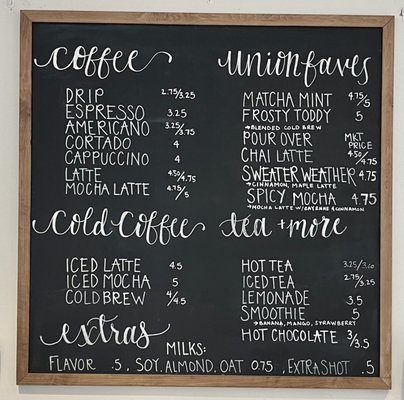 coffee
DRIP 2.75/3.25
ESPRESSO 3.25
AMERICANO 3.25/3.75
CORTADO 4
CAPPUCCINO 4
LATTE 4.50/4.75
MOCHA LATTE 4.75/5
Cold Coffee
ICED LATTE 4.5
ICED MOCHA 5
COLD BREW 4/4.5
extras
union faves
MATCHA MINT 4.75/5
FROSTY TODDY 5
→BLENDED COLD BREW
POUR OVER MKT PRICE
CHAI LATTE 4.50/4.75
SWEATER WEATHER 4.75
→CINNAMON, MAPLE LATTE
SPICY MOCHA 4.75
→MOCHA LATTE W/CAYENNE & CINNAMON
tea + more
HOT TEA 3.25/3.60
ICED TEA 2.75/3.25
LEMONADE 3.5
SMOOTHIE 5
→BANANA, MANGO, STRAWBERRY
HOT CHOCOLATE 3/3.5
MILKS:
FLAVOR .5, SOY, ALMOND, OAT 0.75, EXTRA SHOT .5